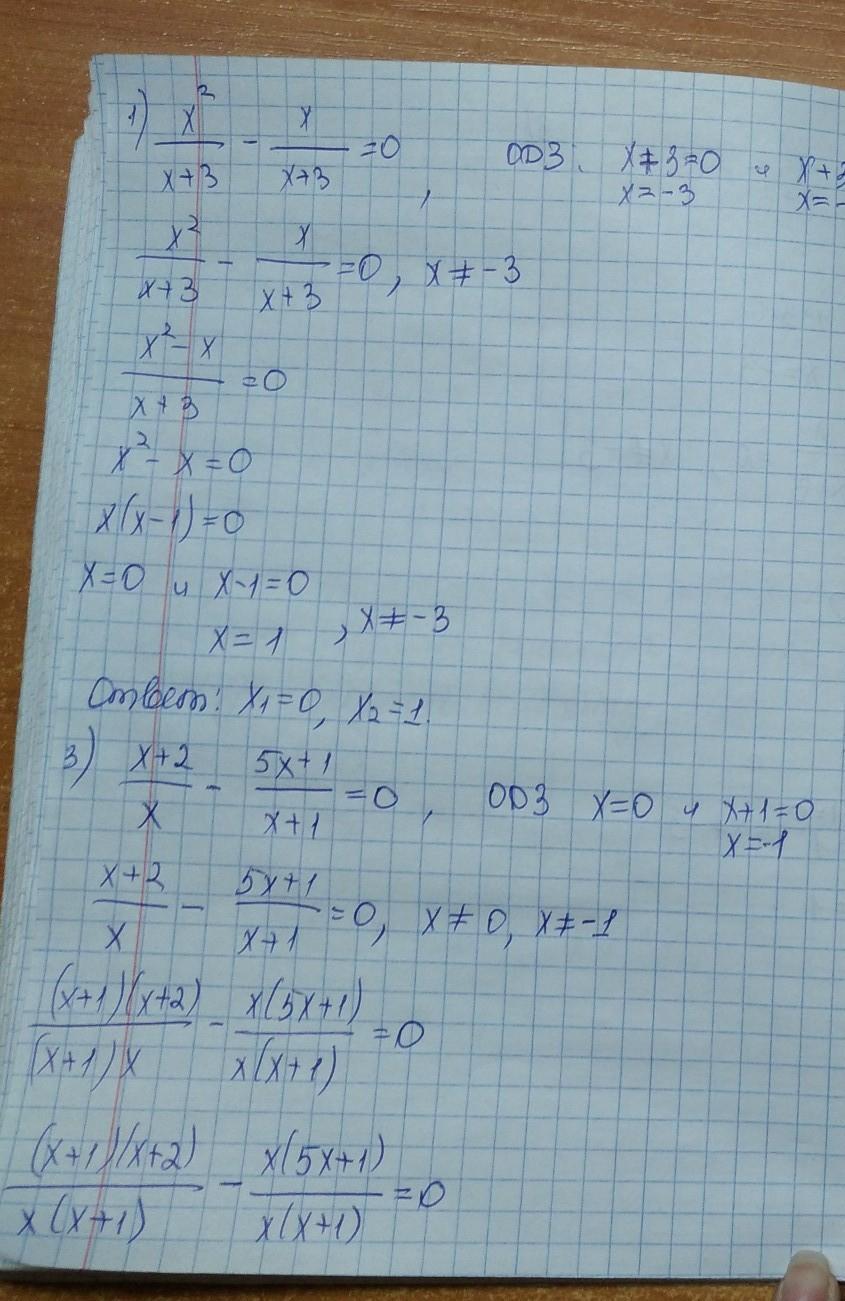 1) x²/(x+3) - x/(x+3) = 0, ОДЗ. x+3=0 и x+3
x=-3 x=-
x²/(x+3) - x/(x+3) = 0, x≠-3
(x²-x)/(x+3) = 0
x²-x=0
x(x-1)=0
x=0 и x-1=0
x=1, x≠-3
Ответ: x₁=0, x₂=1.
3) (x+2)/x - (5x+1)/(x+1) = 0, ОДЗ x=0 и x+1=0
x=-1
(x+2)/x - (5x+1)/(x+1) = 0, x≠0, x≠-1
(x+1)(x+2)/((x+1)x) - x(5x+1)/(x(x+1)) = 0
(x+1)(x+2)/(x(x+1)) - x(5x+1)/(x(x+1)) = 0